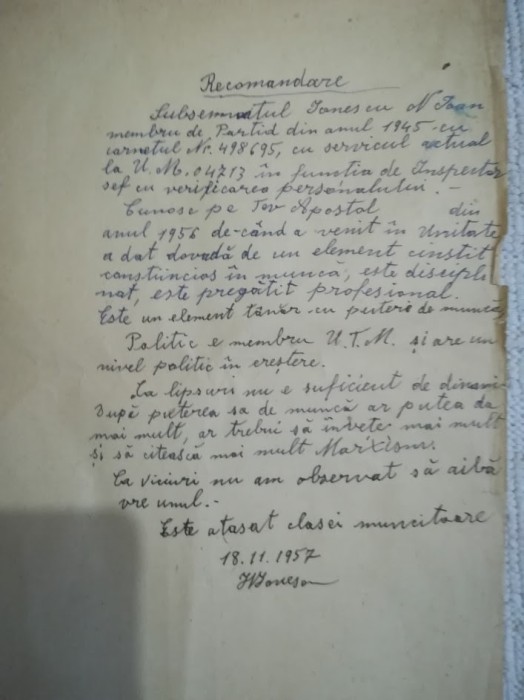 Recomandare
Subsemnatul Ionescu N Ioan
membru de Partid din anul 1945 cu
carnetul Nr. 498695, cu serviciul actual
la U.M. 04713 în functia de Inspector
sef cu verificarea personalului. -
Cunosc pe Tov Apostol din
anul 1956 de-când a venit în Unitate
a dat dovadă de un element cinstit
constiincios în muncă, este discipli
nat, este pregătit profesional.
Este un element tânăr cu putere de muncă
Politic e membru U.T.M. și are un
nivel politic în creștere.
La lipsuri nu e suficient de dinami
După puterea sa de muncă ar putea da
mai mult, ar trebui să învete mai mult
și să citească mai mult Marxism.
Ca viciuri nu am observat să aibă
vre unul.-
Este atasat clasei muncitoare
18.11.1957